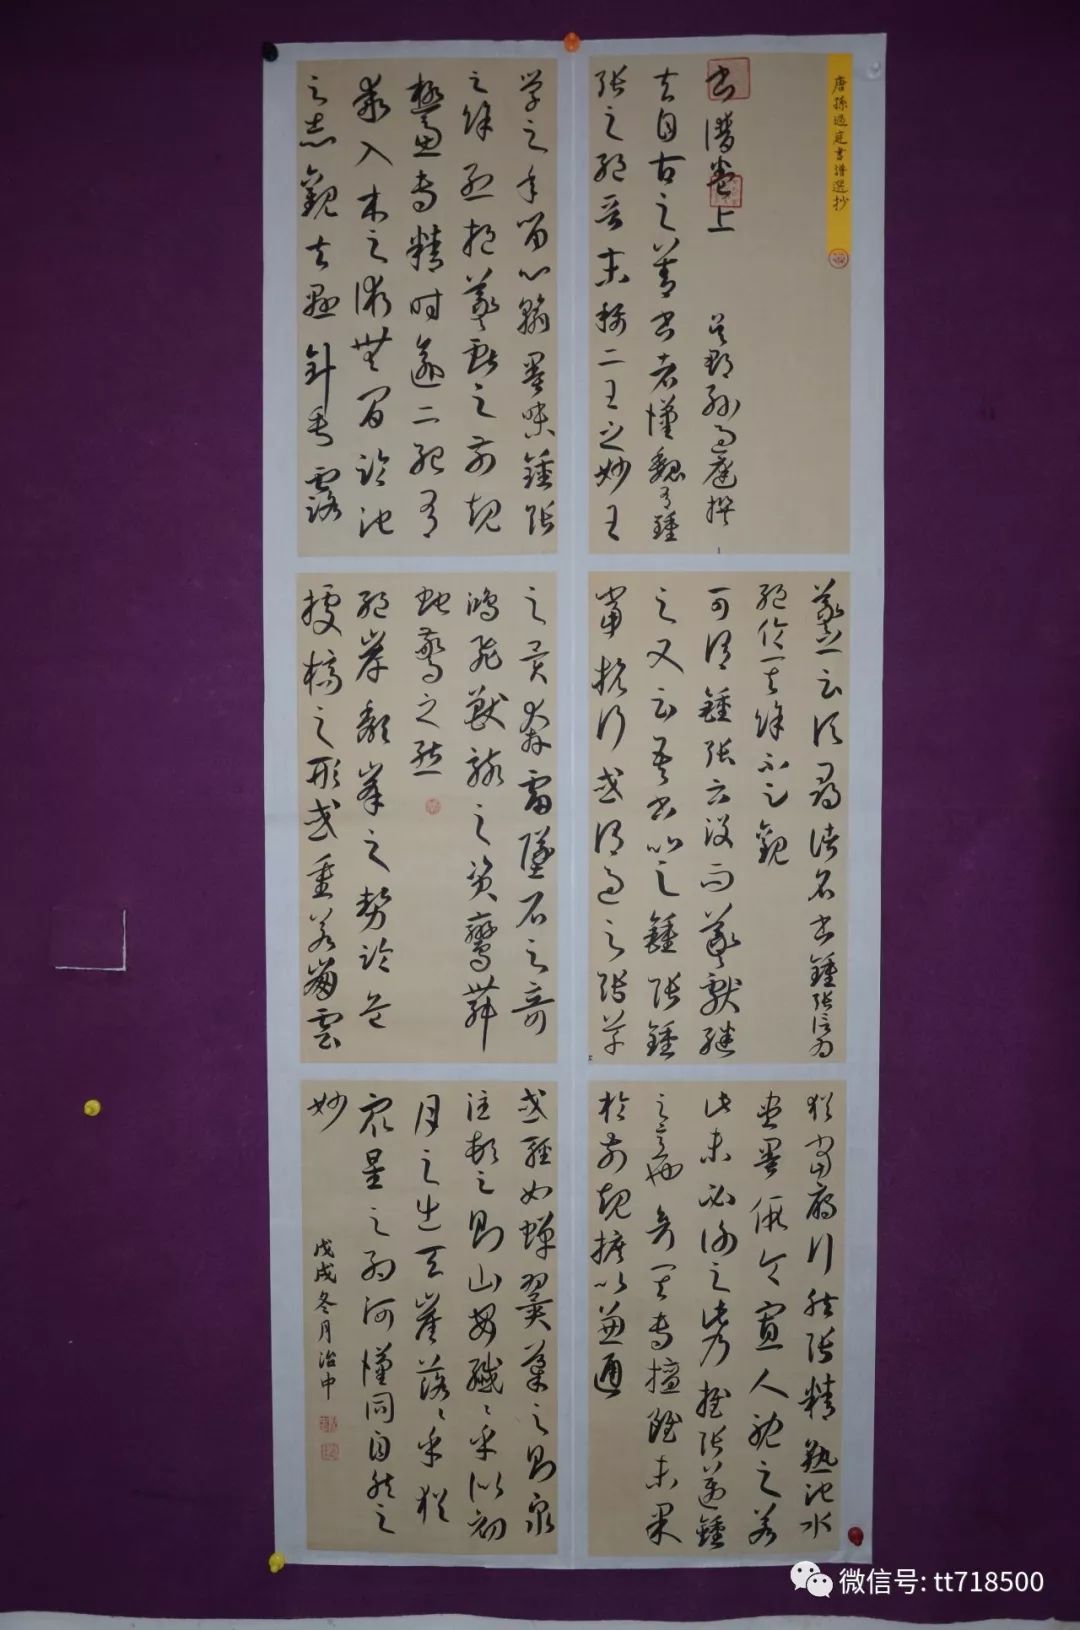 唐孫過庭書譜選抄
書譜卷上 吳郡孫過庭撰
夫自古之善書者漢魏有鍾
張之絕晉末稱二王之妙王
羲之云頃尋諸名書鍾張信為
絕倫其餘不足觀
可謂鍾張云沒而羲獻繼
之又云吾書比之鍾張鍾
當抗行或謂過之張草
猶當雁行然張精熟池水
盡墨假令寡人耽之若
此未必謝之此乃推張邁鍾
之意也考其專擅雖未果
於前規摭以兼通
學之年留心翰墨味鍾張
之餘烈挹羲獻之前規
極慮專精時逾二紀有
乖入木之術無間臨池
之志觀夫懸針垂露
之異奔雷墜石之奇
鴻飛獸駭之資鸞舞
蛇驚之態
絕岸頹峯之勢臨危
據槁之形或重若崩雲
或輕如蟬翼導之則泉
注頓之則山安纖〻乎似初
月之出天崖落〻乎猶
眾星之列河漢同自然之
妙
戊戌冬月治中
微信号: tt718500